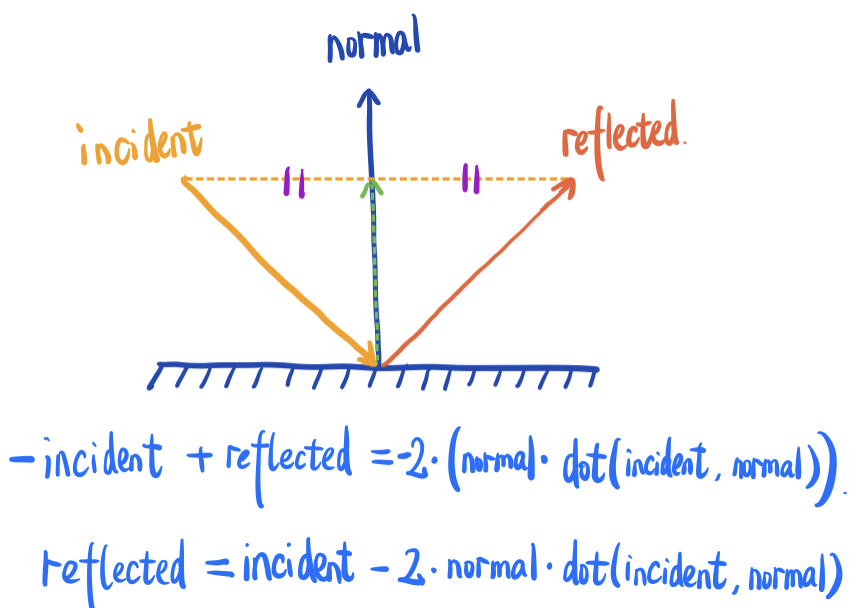 normal
incident
reflected.
-incident + reflected = -2·(normal· dot(incident, normal)).
reflected = incident - 2·normal·dot(incident, normal)